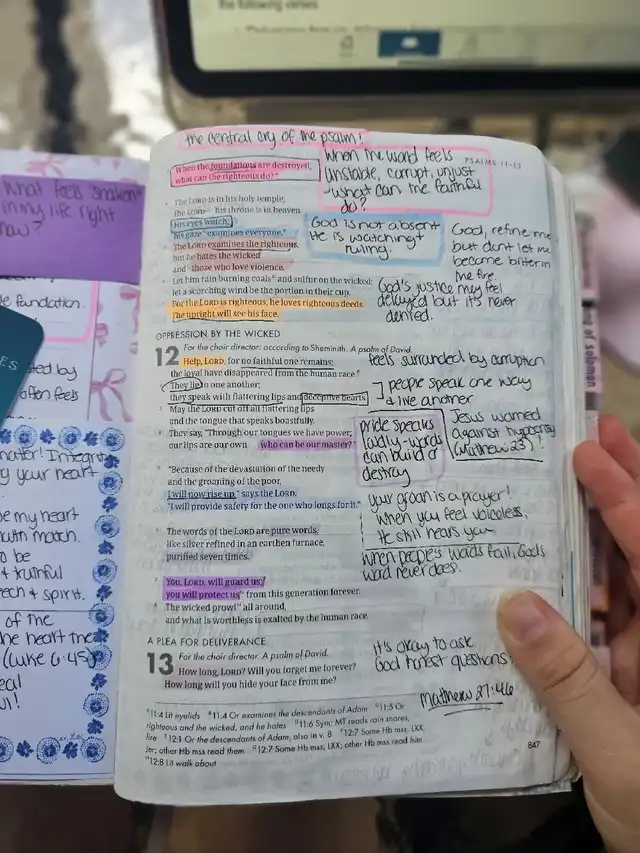 the following verses
the central cry of the psalm!
PSALMS 11-13
When the foundations are destroyed,
what can the righteous do?"
When the world feels
unstable, corrupt, unjust
-what can the faithful
do?
The LORD is in his holy temple;
the LORD— his throne is in heaven.
His eyes watch;
his gaze examines everyone.
The LORD examines the righteous,
but he hates the wicked
and those who love violence.
Let him rain burning coals and sulfur on the wicked;
let a scorching wind be the portion in their cup.
For the LORD is righteous; he loves righteous deeds.
The upright will see his face.
God is not absent
He is watching +
ruling.
God, refine me
but don't let me
become bitter in
the fire.
God's justice may feel
delayed but it's never
denied.
OPPRESSION BY THE WICKED
For the choir director: according to Sheminith. A psalm of David.
12 Help, LORD, for no faithful one remains;
the loyal have disappeared from the human race.
They lie to one another;
they speak with flattering lips and deceptive hearts.
May the LORD cut off all flattering lips
and the tongue that speaks boastfully.
They say, "Through our tongues we have power;
our lips are our own — who can be our master?"
feels surrounded by corruption
people speak one way
+ live another
Jesus warned
against hypocrisy
(Matthew 23)!
Pride speaks
loudly-words
can build or
destroy
"Because of the devastation of the needy
and the groaning of the poor,
I will now rise up," says the LORD.
"I will provide safety for the one who longs for it."
your groan is a prayer!
When you feel voiceless,
He still hears you
The words of the LORD are pure words,
like silver refined in an earthen furnace,
purified seven times.
when people's words fail, God's
word never does.
You, LORD, will guard us;
you will protect us from this generation forever.
The wicked prowl all around,
and what is worthless is exalted by the human race.
A PLEA FOR DELIVERANCE
For the choir director. A psalm of David.
13 How long, LORD? Will you forget me forever?
How long will you hide your face from me?
it's okay to ask
God honest questions.
Matthew 27:46
11:4 Lit eyelids 11:4 Or examines the descendants of Adam 11:5 Or
righteous and the wicked, and he hates 11:6 Sym; MT reads rain snares,
fire 12:1 Or the descendants of Adam, also in v. 8 12:7 Some Hb mss, LXX,
Jer; other Hb mss read them 12:7 Some Hb mss, LXX; other Hb mss read him
12:8 Lit walk about
847
What feels "shaken"
in my life right
now?
foundation.
often feels
your heart
my heart
match.
to be
+ truthful
+ spirit.
of the
the heart the
(Luke 6:45)
song of solomon